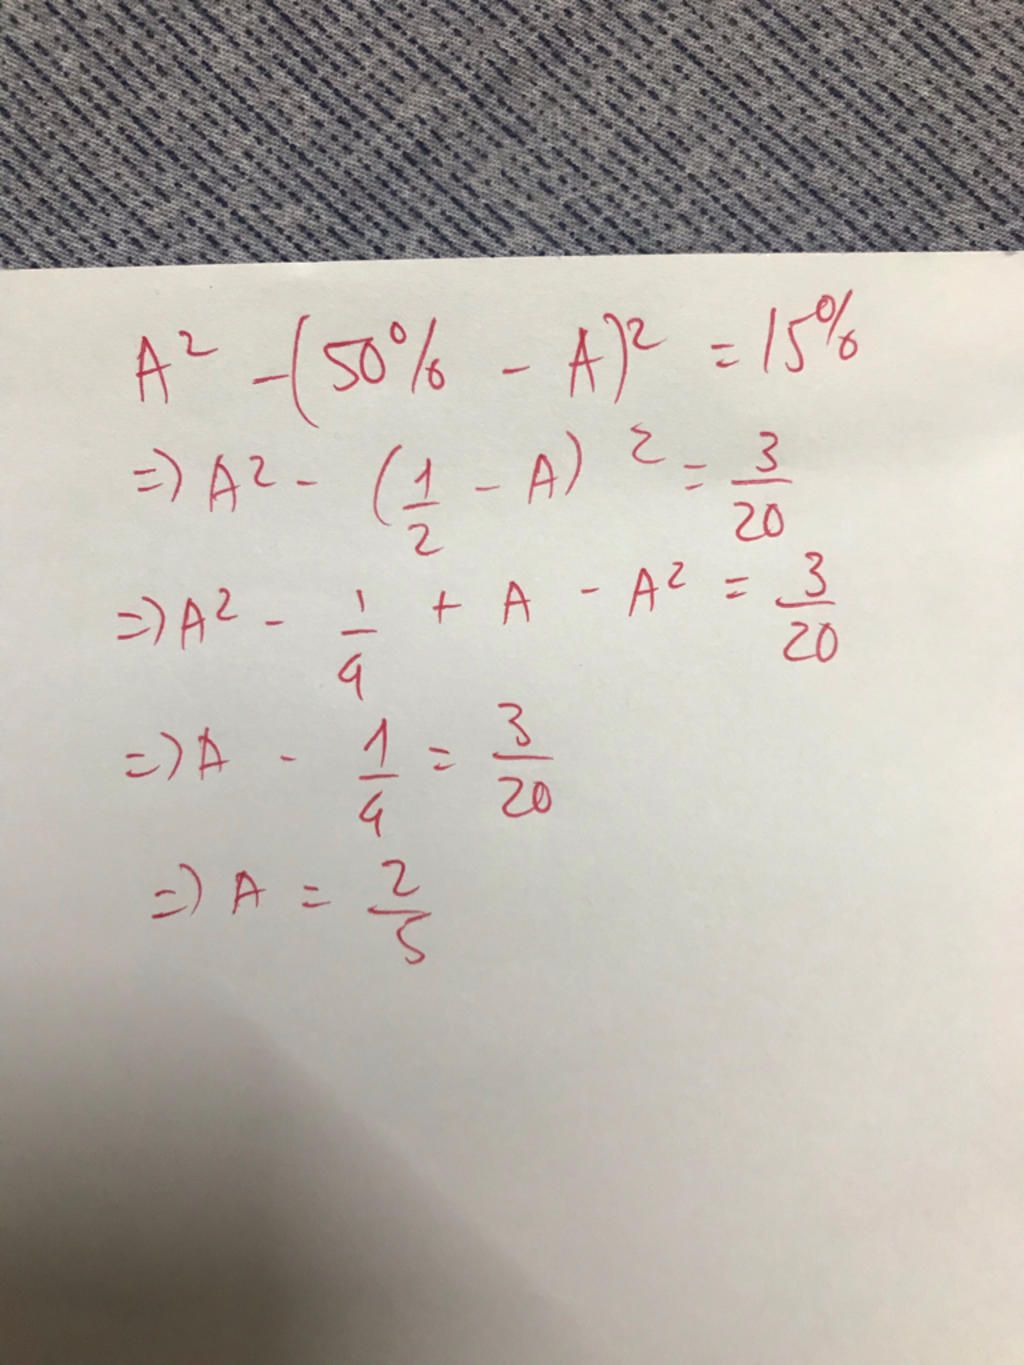 A² - (50% - A)² = 15%
=> A² - (1/2 - A)² = 3/20
=> A² - 1/4 + A - A² = 3/20
=> A - 1/4 = 3/20
=> A = 2/5